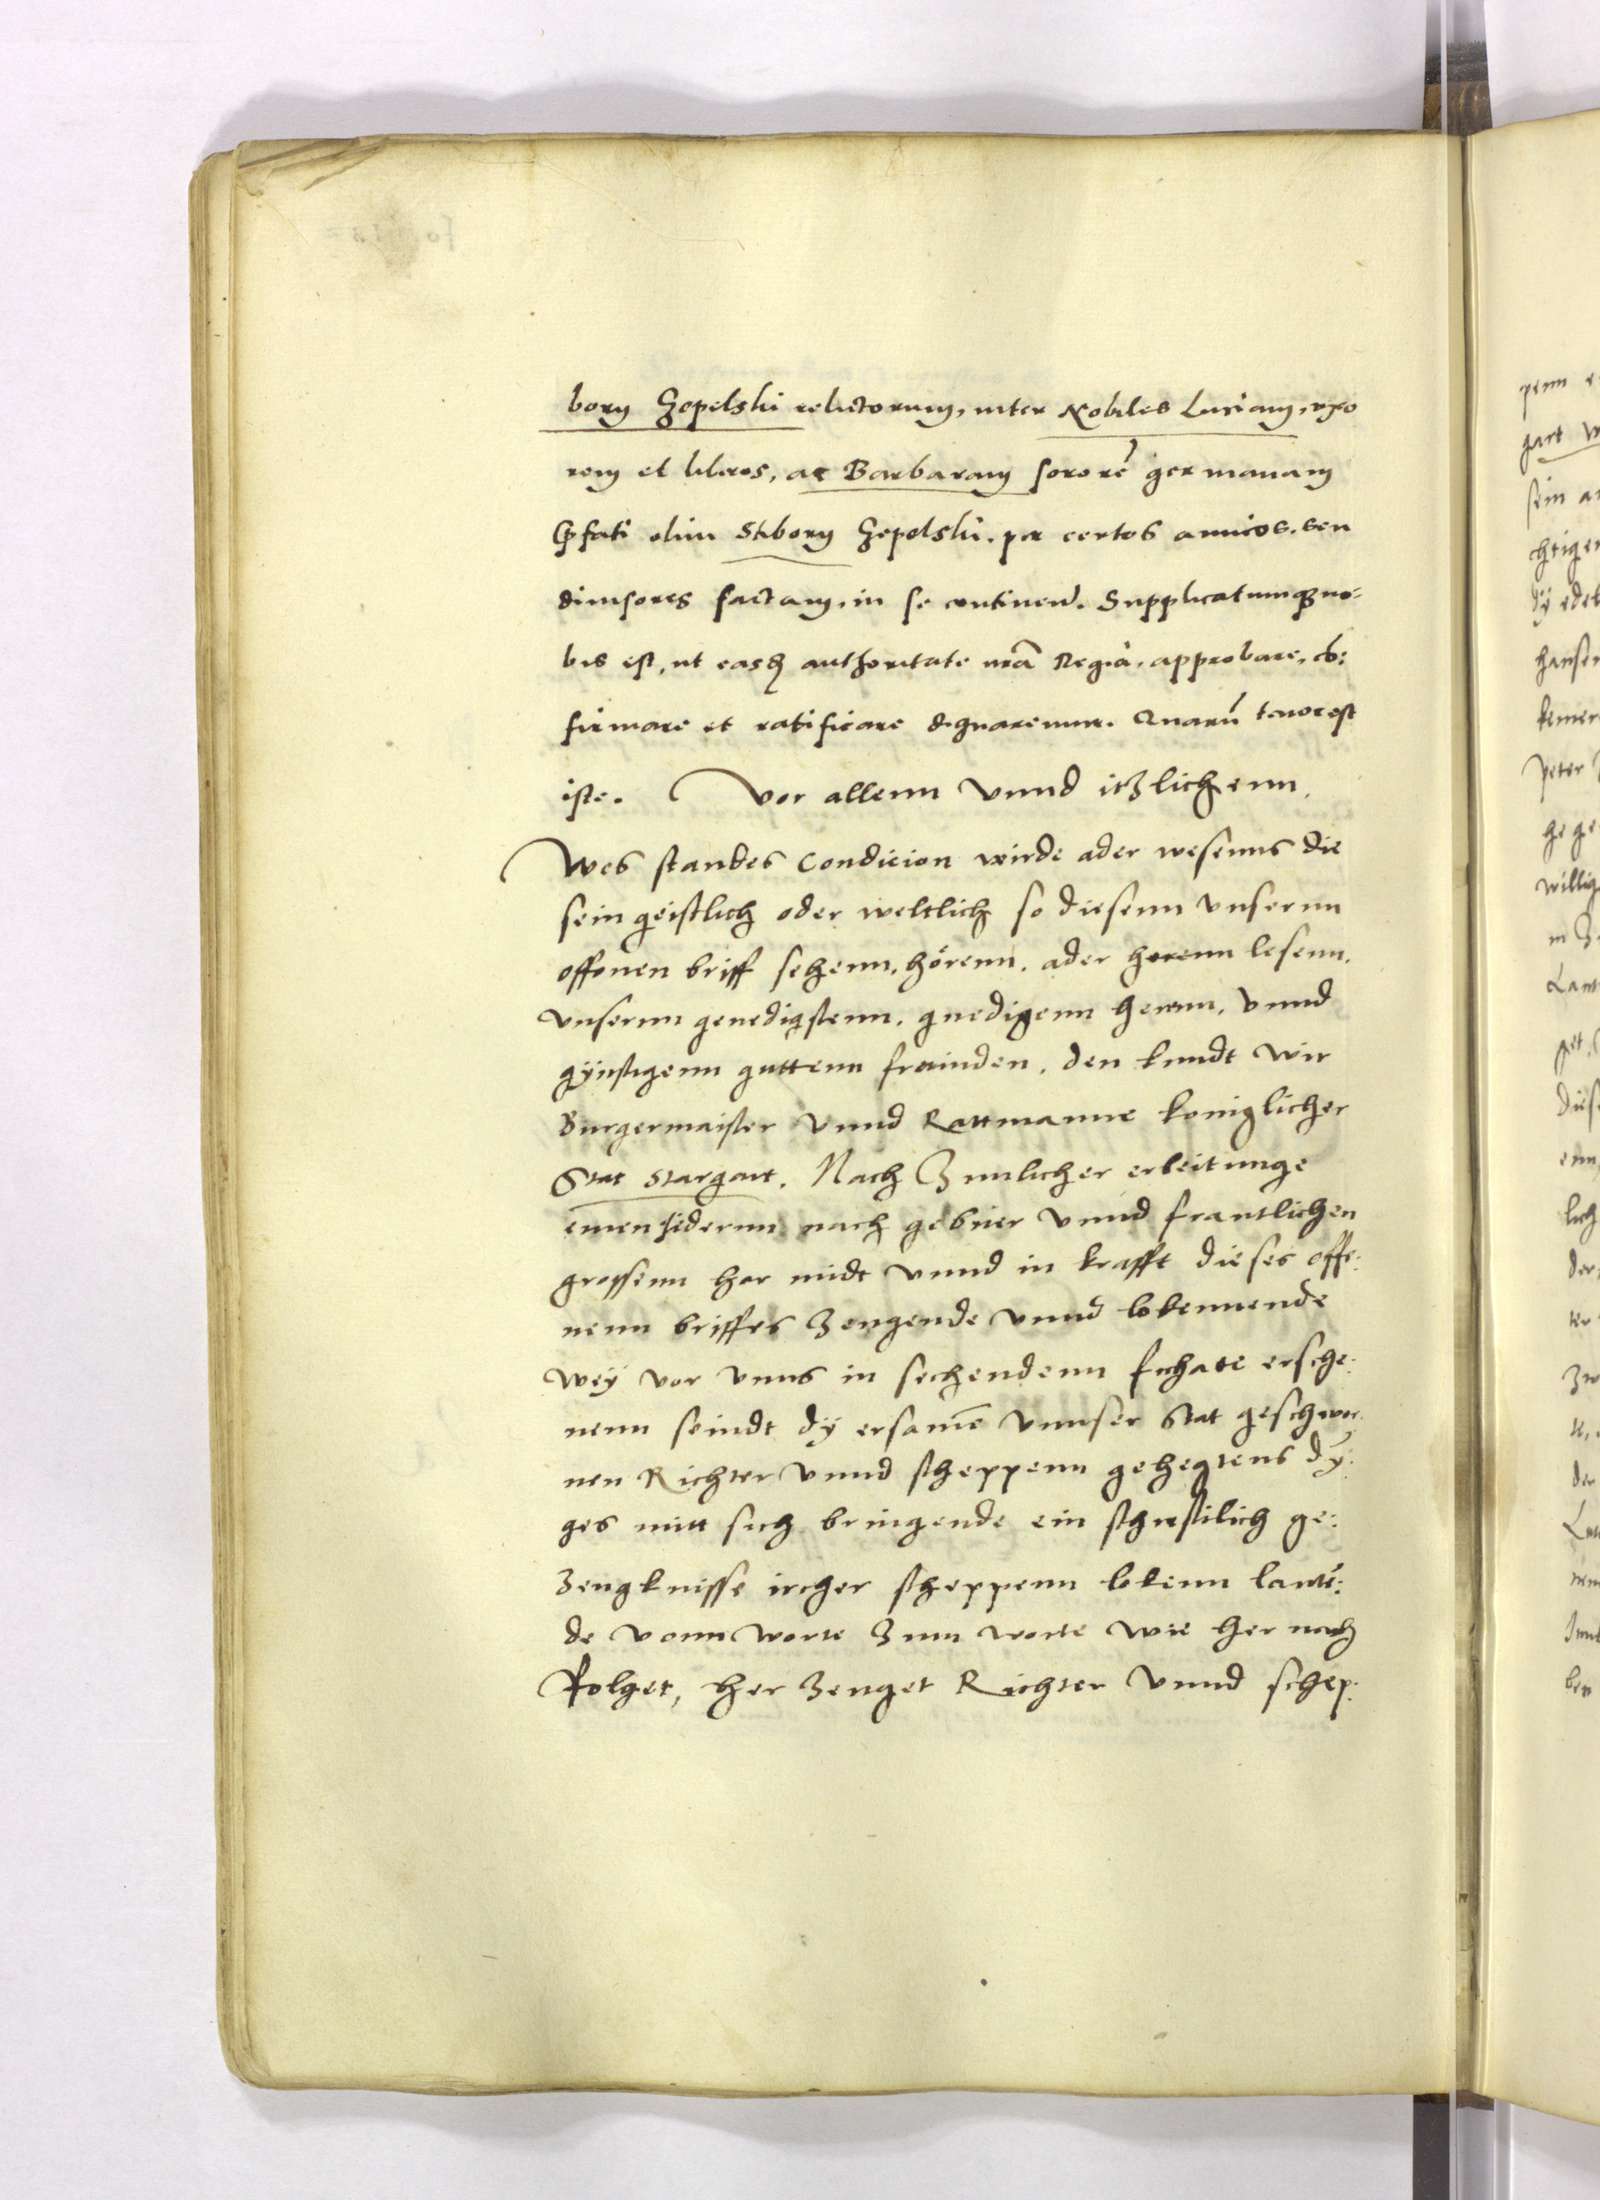 bory Zepelski relictorum, inter Nobiles Luciam, uxo
rem et liberos, ac Barbaram sororē germanam
p̄fati olim Stibory Zepelski, per certos amicos, seu
diuisores factam, in se continen̄. Supplicatumq3 no-
bis est, ut easd authoritate nr̄a Regia, approbare, cō:
firmare et ratificare dignaremur. Quarū tenor est
iste. Vor allenn vnnd itzlichenn
Wes standes Condicion wirde ader wesenns die
sein geistlich oder weltlich so diesenn vnsernn
offonen briff sehenn, hörenn, ader horenn lesenn,
vnsernn genedigstenn, gnedigenn herrnn, vnnd
gÿnstigenn guttenn freinden, den kundt wir
Burgermaister vnnd Rattmanne koniglicher
Stat Stargart. Nach Zimlicher erbeitunge
einen jedernn nach gebüer vnnd frantlichen
grossenn her midt vnnd in krafft dieses offe:
nenn briffes Zeugende vnnd bekennende
Wÿ vor vnns in sechendenn sichate ersche:
nenn seindt dÿ ersamē vnnser Stat geschwor
nen Richter vnnd scheppenn gehegtens dÿ:
ges mitt sich bringende ein schrifftlich ge:
Zeugknisse ircher scheppenn bokenn lautē:
de vonn worte Zum worte wie her nach
folget, her Zeuget Richter vnnd schep: